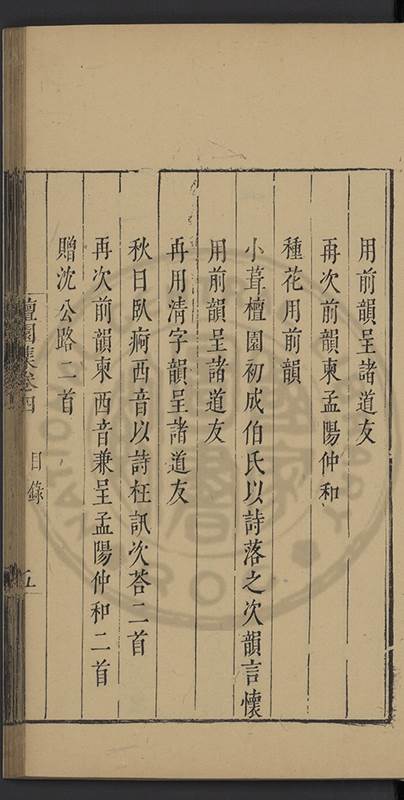 用前韻呈諸道友
再次前韻柬孟陽仲和
種花用前韻
小葺檀園初成伯氏以詩落之次韻言懷
用前韻呈諸道友
再用清字韻呈諸道友
秋日臥痾西音以詩枉訊次荅二首
再次前韻柬西音兼呈孟陽仲和二首
贈沈公路二首
檀園集卷四 目錄 五